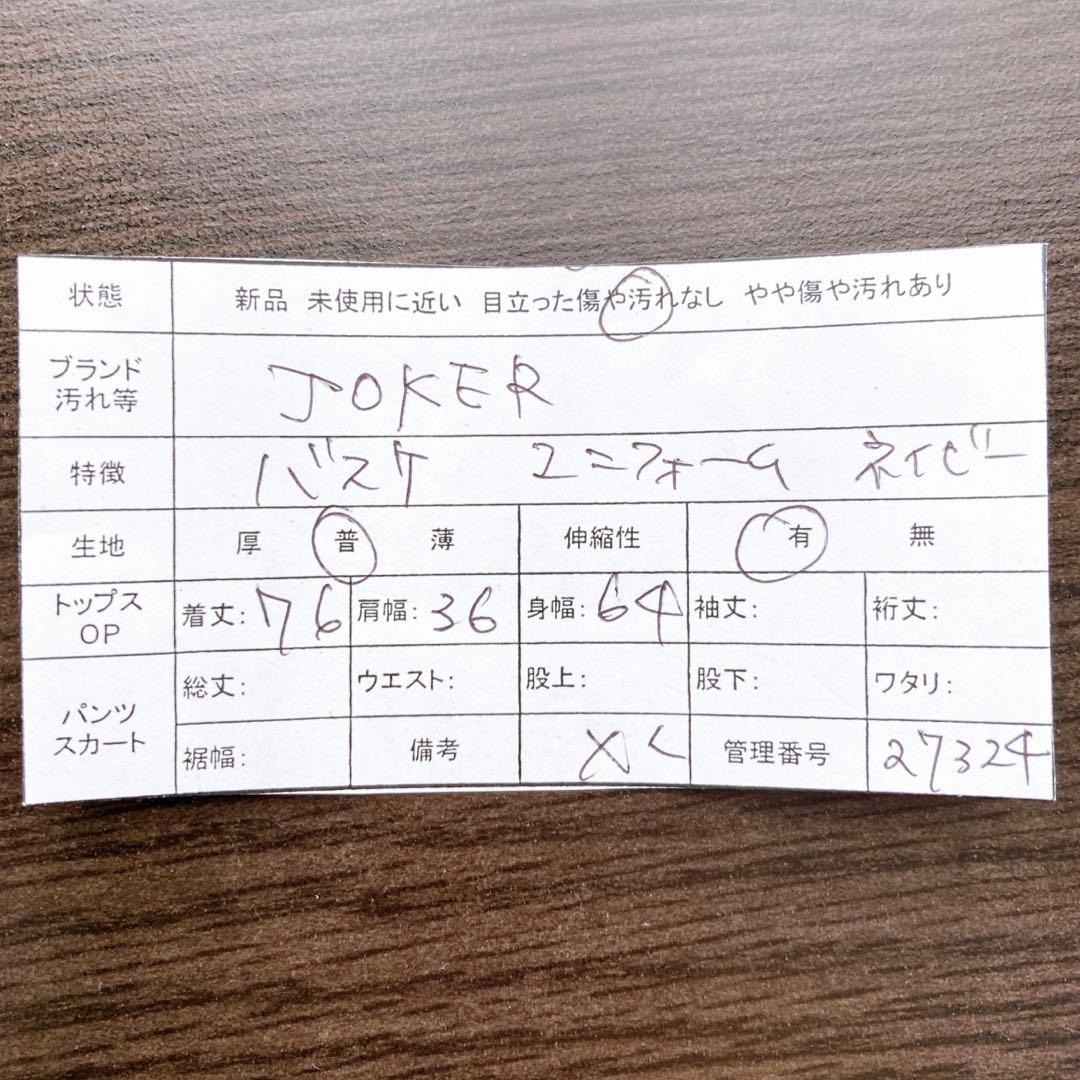 状態 新品 未使用に近い 目立った傷や汚れなし やや傷や汚れあり
ブランド
汚れ等 JOKER
特徴 バスケ ユニフォーム ネイビー
生地 厚 普 薄 伸縮性 有 無
トップス
OP 着丈: 76 肩幅: 36 身幅: 64 袖丈: 裄丈:
パンツ
スカート 総丈: ウエスト: 股上: 股下: ワタリ:
裾幅: 備考 管理番号 27324